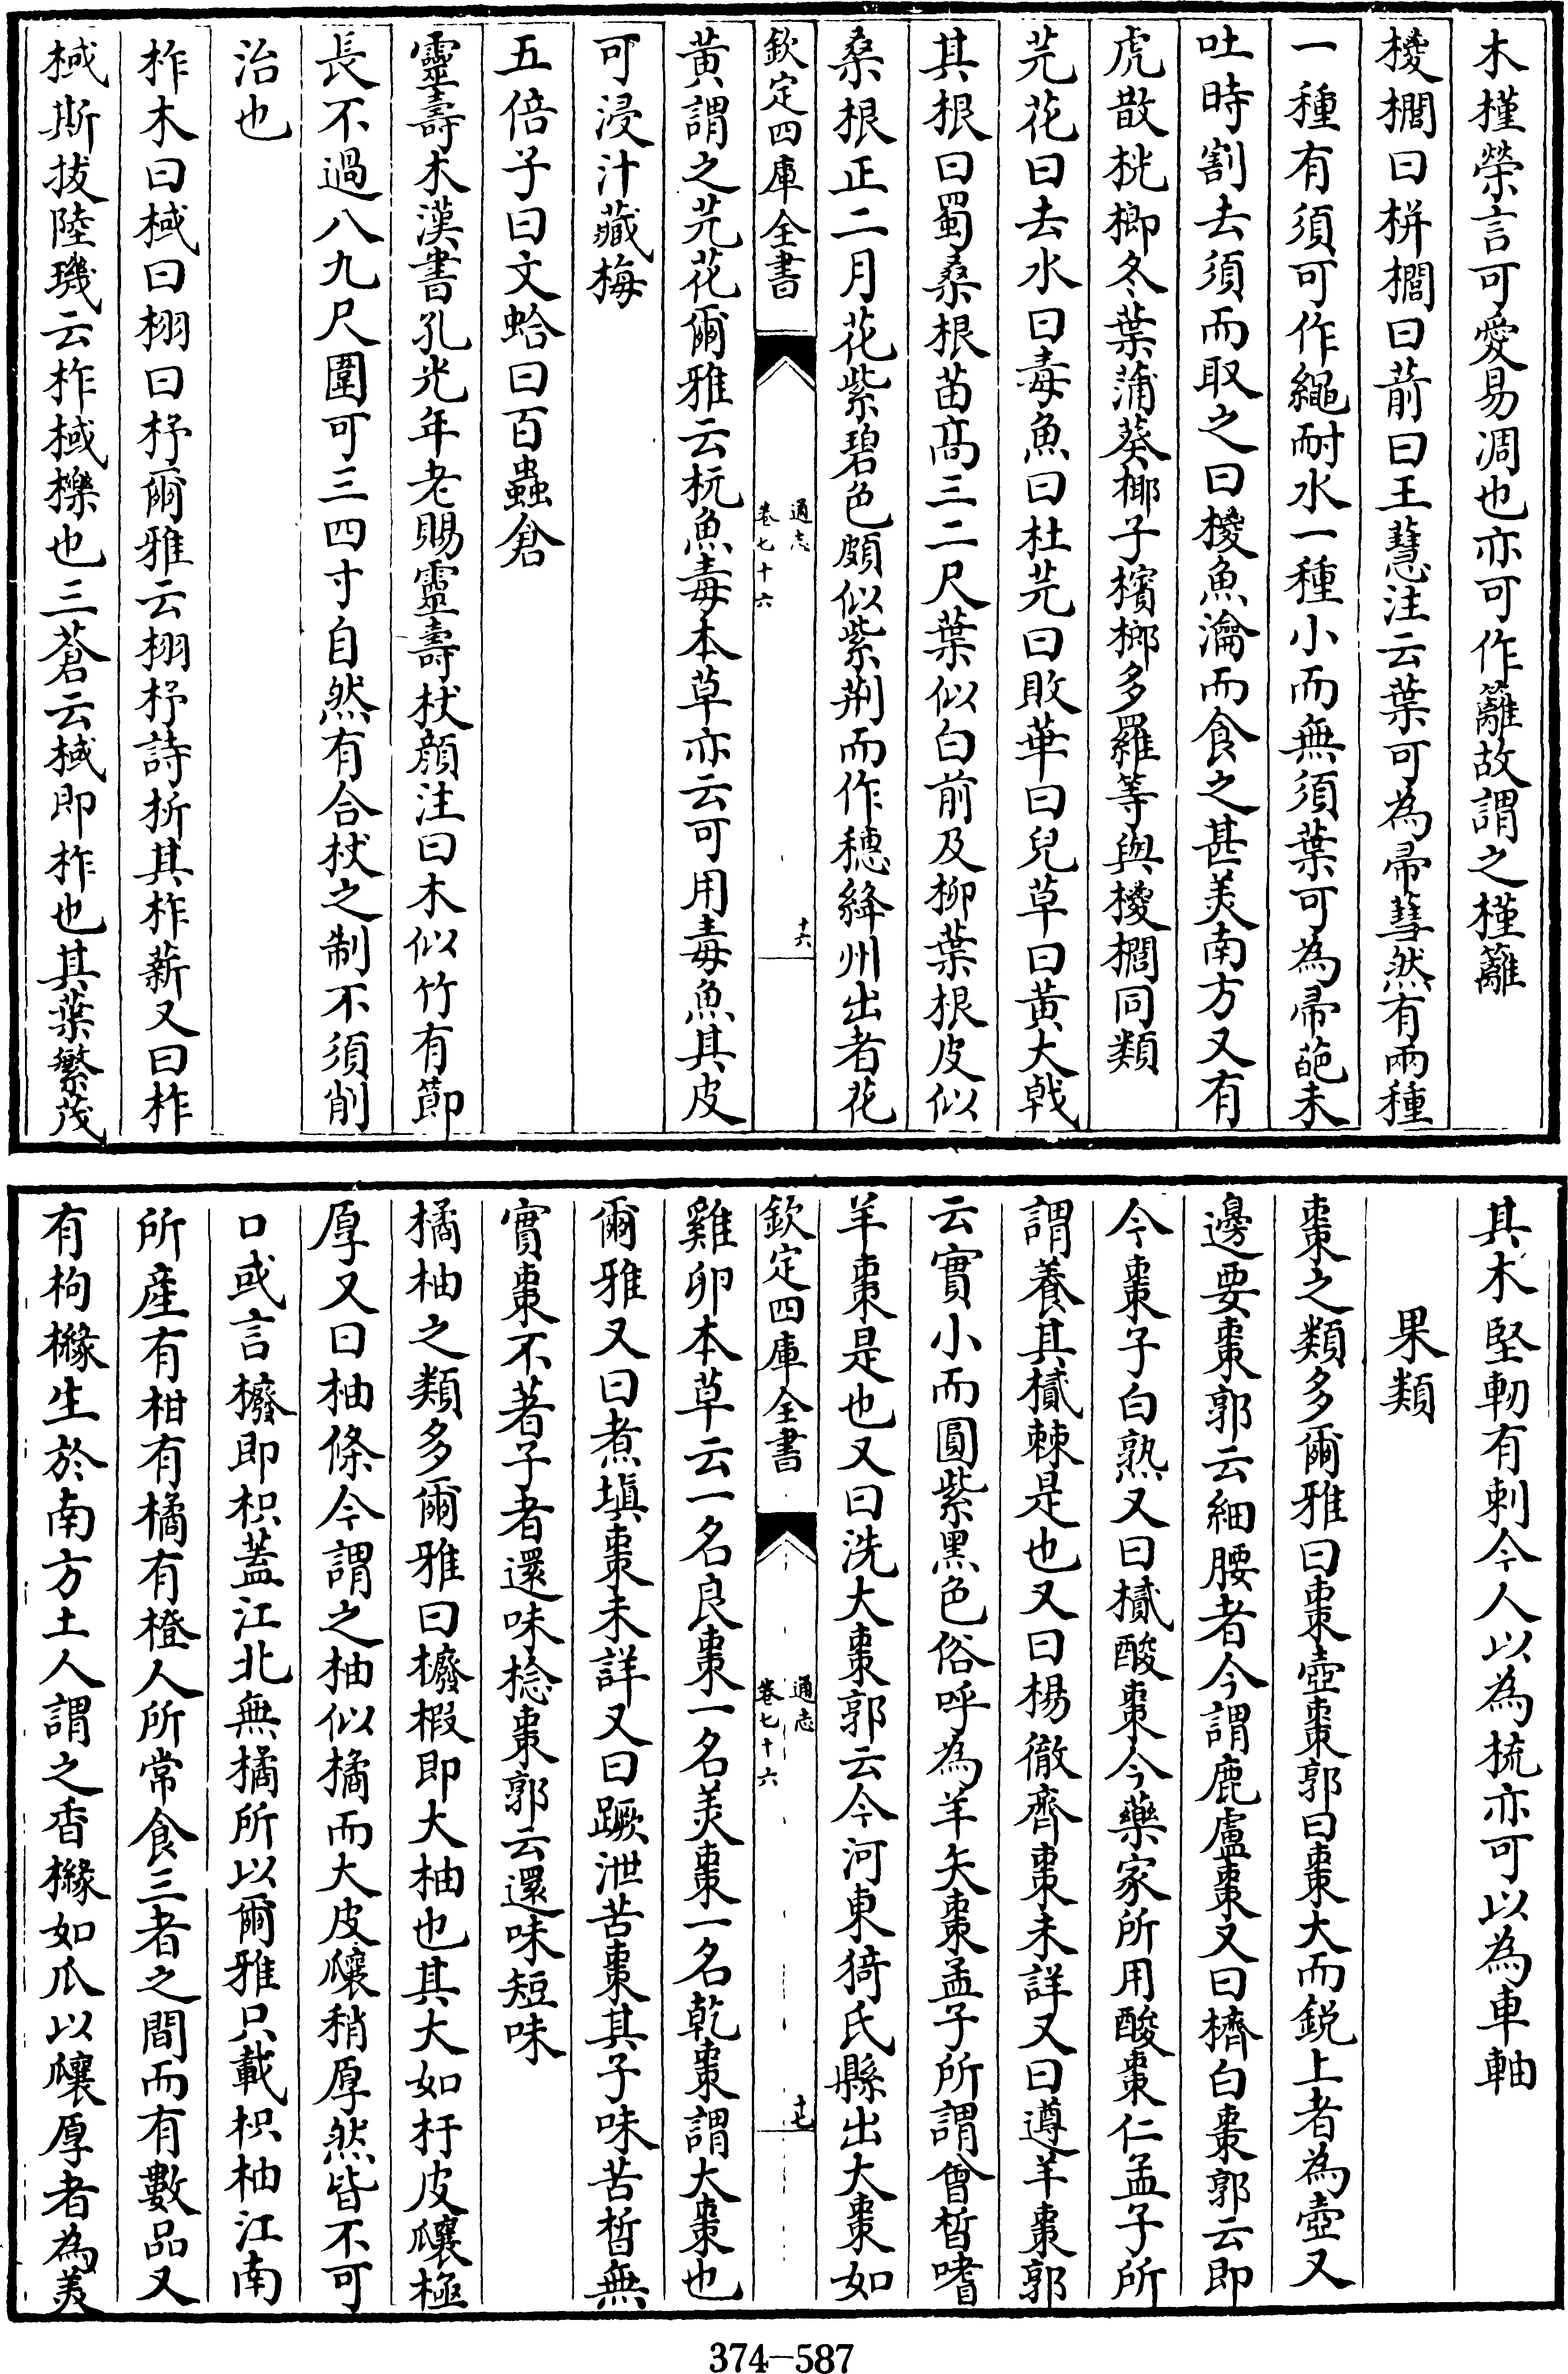 木槿榮言可愛易凋也亦可作籬故謂之槿籬
椶櫚曰栟櫚曰葥曰王蔧注云葉可為帚彗然有兩種
一種有須可作繩耐水一種小而無須葉可為帚葩未
吐時割去須而取之曰椶魚瀹而食之甚美南方又有
虎散桄榔冬葉蒲葵椰子檳榔多羅等與椶櫚同類
芫花曰去水曰毒魚曰杜芫曰敗華曰兒草曰黄大戟
其根曰蜀桑根苗髙三二尺葉似白前及柳葉根皮似
桑根正二月花紫碧色頗似紫荆而作穗絳州出者花
欽定四庫全書
通志
卷七十六
十六
黄謂之芫花爾雅云杬魚毒本草亦云可用毒魚其皮
可浸汁藏梅
五倍子曰文蛤曰百蟲倉
靈壽木漢書孔光年老賜靈壽杖顔注曰木似竹有節
長不過八九尺圍可三四寸自然有合杖之制不須削
治也
柞木曰棫曰栩曰杼爾雅云栩杼詩析其柞薪又曰柞
棫斯拔陸璣云柞棫櫟也三蒼云棫即柞也其葉繁茂
其木堅韌有刺今人以為梳亦可以為車軸
果類
棗之類多爾雅曰棗壺棗郭曰棗大而鋭上者為壺又
邊要棗郭云細腰者今謂鹿盧棗又曰櫅白棗郭云即
今棗子白熟又曰樲酸棗今藥家所用酸棗仁孟子所
謂養其樲棘是也又曰楊徹齊棗未詳又曰遵羊棗郭
云實小而圓紫黑色俗呼為羊矢棗孟子所謂曾晳嗜
羊棗是也又曰洗大棗郭云今河東猗氏縣出大棗如
欽定四庫全書
通志
卷七十六
十七
雞卵本草云一名良棗一名美棗一名乾棗謂大棗也
爾雅又曰煮填棗未詳又曰蹶泄苦棗其子味苦晳無
實棗不著子者還味棯棗郭云還味短味
橘柚之類多爾雅曰櫠椵即大柚也其大如杅皮瓤極
厚又曰柚條今謂之柚似橘而大皮瓤稍厚然皆不可
口或言櫠即枳蓋江北無橘所以爾雅只載枳柚江南
所產有柑有橘有橙人所常食三者之間而有數品又
有枸櫞生於南方土人謂之香櫞如瓜以瓤厚者為美
374-587